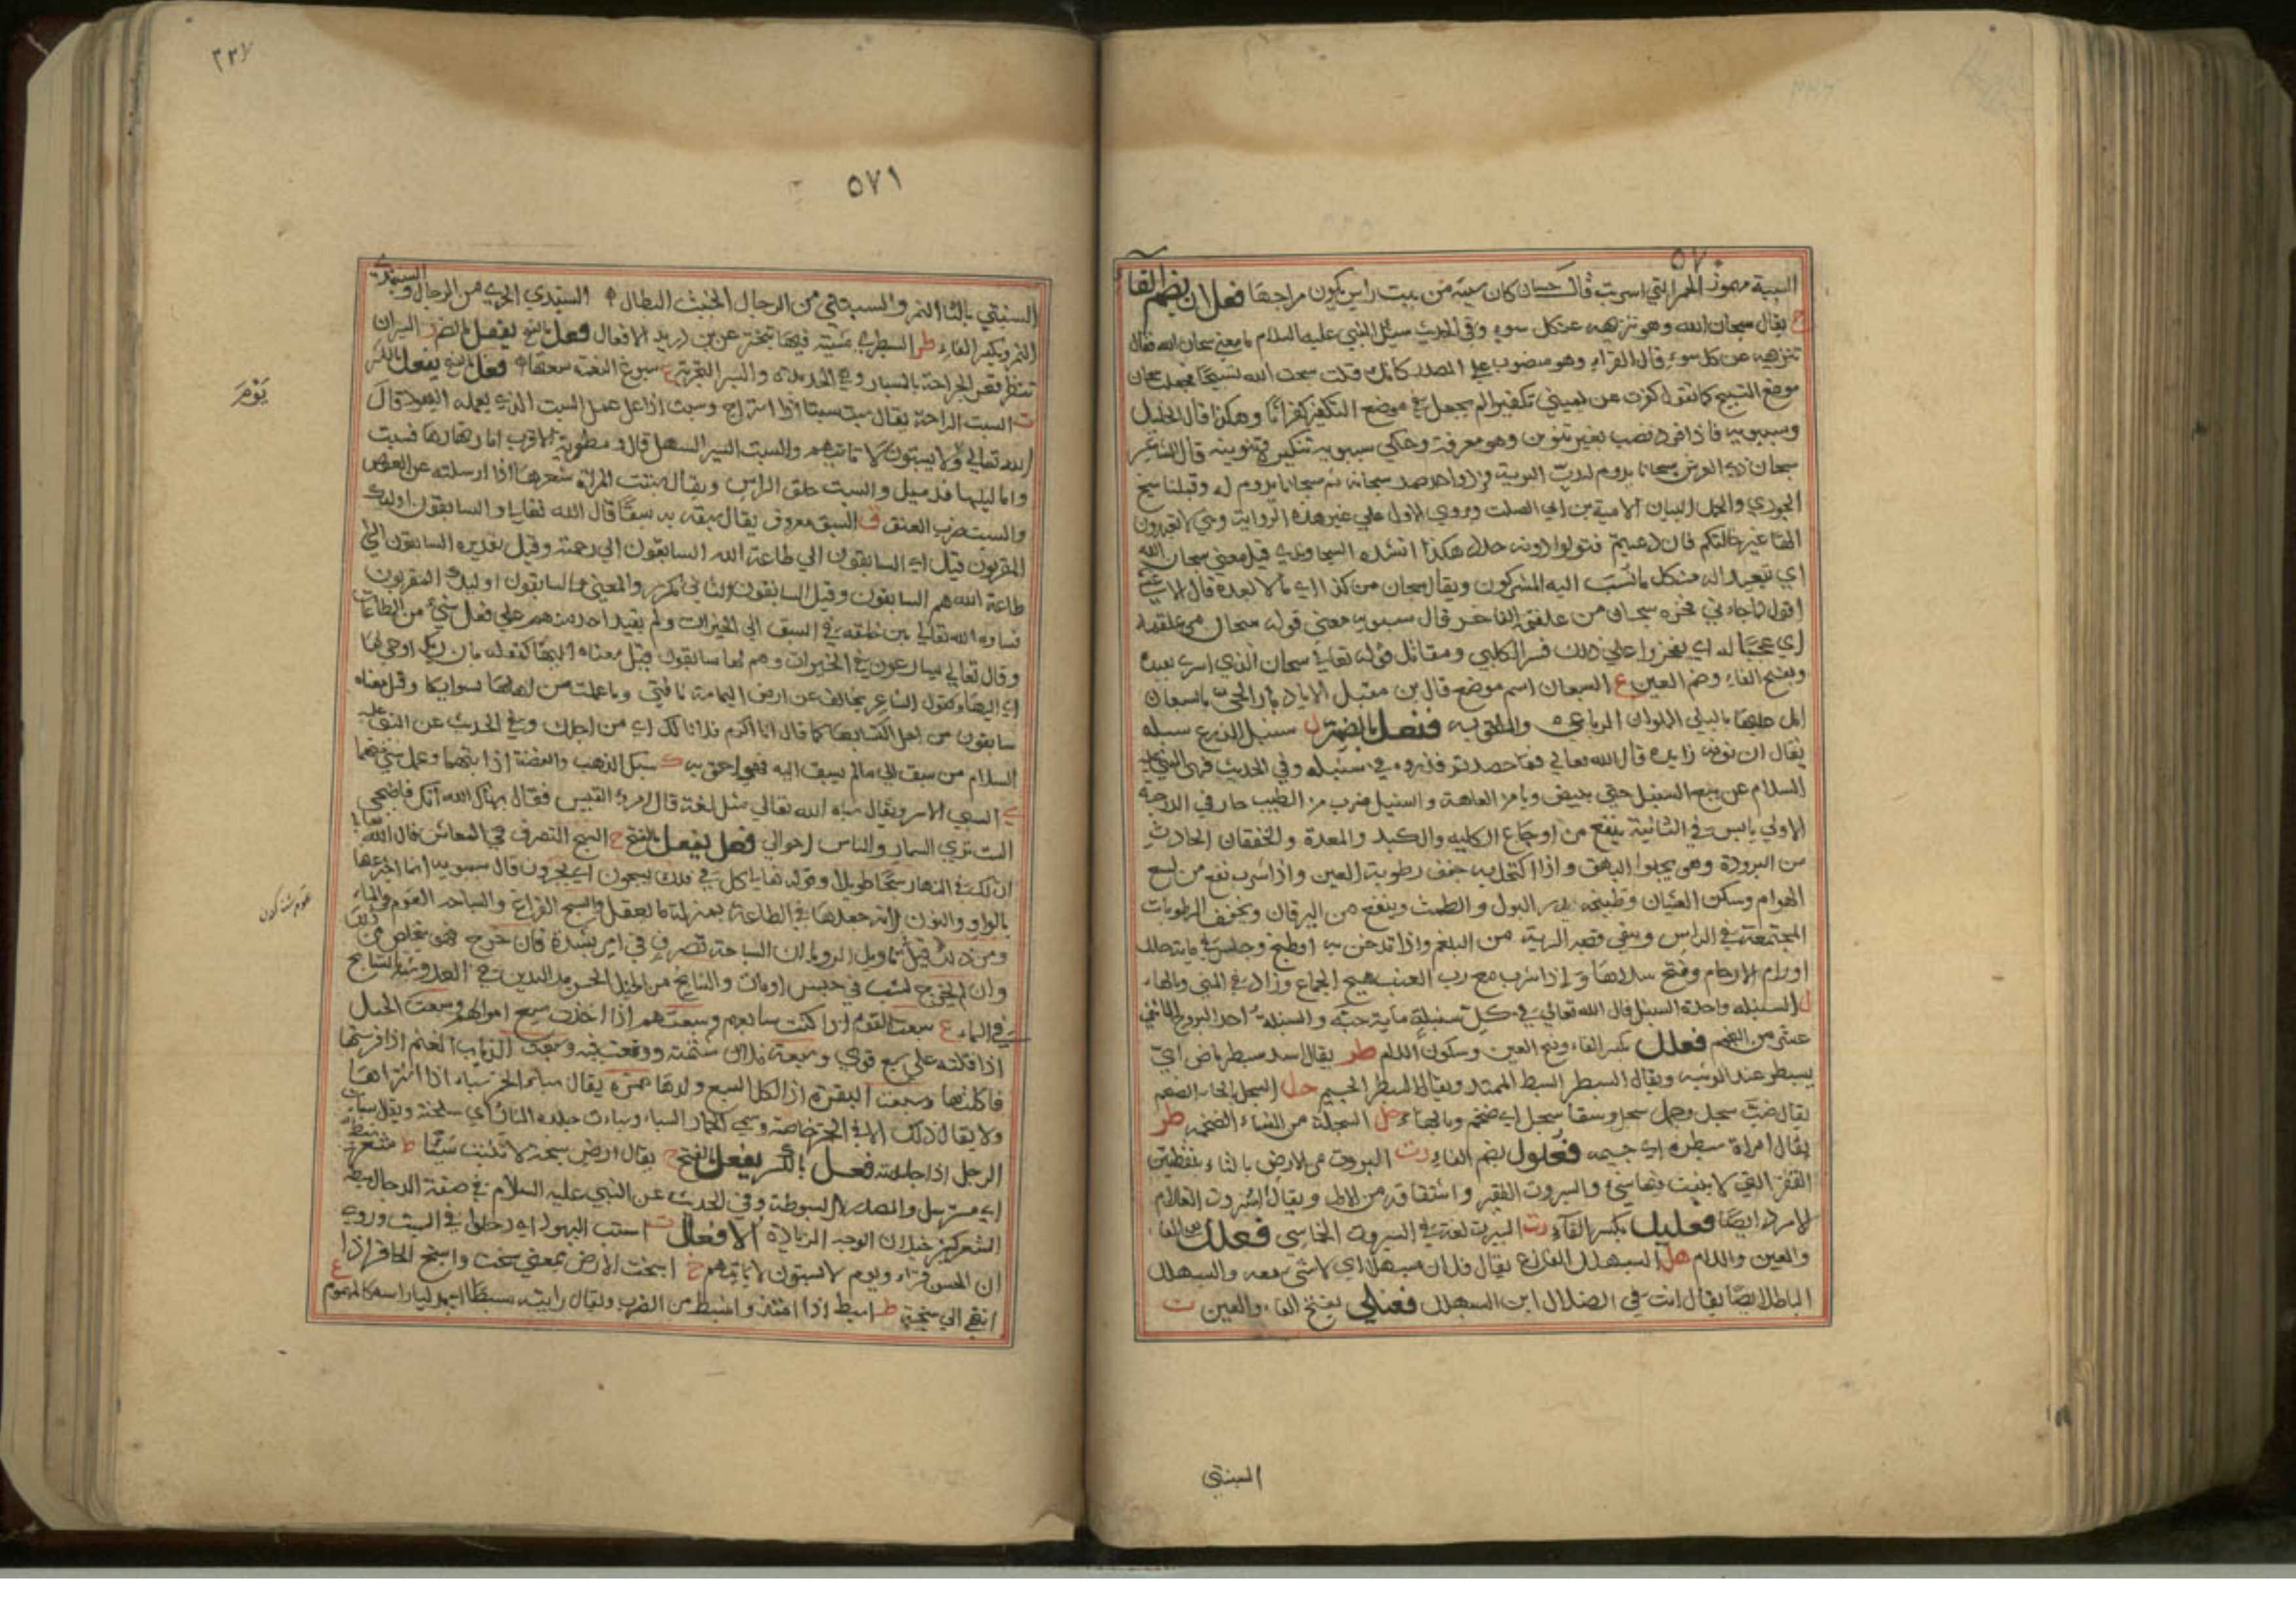 ٥٧٠
السبية مهموز الخمر التي اسريت قال حسان كان سبية من بيت راس يكون مزاجها فعلان بضم الفاء
ح يقال سبحان الله وهو تنزيهه عن كل سوء وفي الحديث سئل النبي عليه السلام ما معنى سبحان الله فقال
تنزيهه عن كل سوء قال الفراء وهو منصوب على المصدر كانك قلت سبحت الله تسبيحا فجعلت سبحان
موضع التسبيح كما تقول كفرت عن يميني تكفيرا ثم يجعل في موضع التكفير كفرانا وهكذا قال الخليل
وسيبويه فاذا افرد نصب بغير تنوين وهو معرفة وحكى سيبويه تنكيره وتنوينه قال الشاعر
سبحان ذي العرش سبحانا يدوم له رب البرية فرد واحد صمد سبحانه ثم سبحانا يدوم له وقبلنا سبح
الجودي والجمد البيتان لامية بن ابي الصلت ويروى الاول على غير هذه الرواية وهي لا تعبدون
الها غير خالقكم فان دعيتم فقولوا دونه حدد هكذا انشده السجاوندي قيل معنى سبحان الله
اي تبعيد الله من كل ما نسب اليه المشركون ويقال سبحان من كذا اي ما ابعده قال الاعشى
اقول لما جاءني فخره سبحان من علقمة الفاخر قال سيبويه معنى قوله سبحان من علقمة
اي عجبا له اي يفخر وا على ذلك فسر الكلبي ومقاتل قوله تعالى سبحان الذي اسرى بعبده
وبفتح الفاء وضم العين ع السبعان اسم موضع قال بن مقبل الا يا ديار الحي بالسبعان
امل عليها بالبلى الملوان الرباعي والملحق به فنعل بالضم ل سنبل الزرع سبله
يقال ان نونه زايدة قال الله تعالى فما حصدتم فذروه في سنبله وفي الحديث نهى النبي عليه
السلام عن بيع السنبل حتى يبيض ويامن العاهة والسنبل ضرب من الطيب حار في الدرجة
الاولى يابس في الثانية ينفع من اوجاع الكليه والكبد والمعدة والخفقان الحادث
من البرودة وهي يجلوا البهق واذا اكتحل به جفف رطوبة العين واذا شرب نفع من لسع
الهوام وسكن الغثيان وطبيخه يدر البول والطمث وينفع من اليرقان ويجفف الرطوبات
المجتمعة في الراس وينقي قصبة الرية من البلغم واذا تدخن به او طبخ وجلس في مايه حلل
اورام الارحام وفتح سددها واذا شرب مع رب العنب هيج الجماع وزاد في المني وبالهاء
ل السنبله واحدة السنبل قال الله تعالى في كل سنبلة ماية حبة والسنبلة احد البروج الاثني
عشر من النجوم فعلل بكسر الفاء وفتح العين وسكون اللام طر يقال اسد سبطر ماض اي
يسبطر عند الوثبه ويقال السبطر السبط الممتد ويقال السبطر الجسيم حل السبحل بالحاء الضخم
يقال ضب سبحل وجمل سبحل وسقاء سبحل اي ضخم وبالهاء حل السبحلة من النساء الضخمه طر
يقال امراة سبطره اي جسيمه فعلول بضم الفاء رت السبروت من الارض بالتاء بنقطتين
القفر التي لا ينبت فيها شيء والسبروت الفقير واشتقاقه من الاول ويقال السبروت الغلام
الامرد ايضا فعليل بكسر الفاء رت السبريت لغة في السبروت الخماسي فعلل بفتح الفاء
والعين واللام هل السبهلل الفارغ يقال فلان سبهللا اي لا شيء معه والسبهلل
الباطل ايضا يقال انت في الضلال ابن السبهلل فعنلى بفتح الفاء والعين ت
السبنتى
٢٢٧
٥٧١
السبنتى بالتاء النمر والسبنتى من الرجال الخبيث البطال د السبندى الجريء من الرجال والسبندى
النمر وبكسر الفاء طر السبطرى مشية فيها تبختر عن بن دريد الافعال فعل بالفتح يفعل بالضم ر السبران
تنظر قعر الجراحة بالمسبار وهي الحديدة والسبر التجربة غ سبوغ النعمة سعتها فعل بالفتح يفعل بالكسر
ت السبت الراحة يقال سبت سبتا اذا استراح وسبت اذا عمل عمل السبت الذي يعمله اليهود قال
الله تعالى ويوم لا يسبتون لا تاتيهم والسبت السير السهل قال ومطوية الاقراب اما نهارها فسبت
واما ليلها فذميل والسبت حلق الراس ويقال سبتت المراة شعرها اذا ارسلته عن العقص
والسبت ضرب العنق ق السبق معروف يقال سبقه به سبقا قال الله تعالى والسابقون اولئك
المقربون قيل اي السابقون الى طاعة الله السابقون الى رحمته وقيل تقديره السابقون الى
طاعة الله هم السابقون وقيل السابقون الثاني مكرر والمعنى والسابقون اوليك المقربون
فساوى الله تعالى بين خلقه في السبق الى الخيرات ولم يقيد احد منهم على فعل شيء من الطاعات
وقال تعالى يسارعون في الخيرات وهم لها سابقون قيل معناه اليها كقوله بان ربك اوحى لها
اي اليها وكقول الشاعر تجانف عن ارض اليمامة ناقتي وما عملت من اهلها لسوايكا وقيل معناه
سابقون من اجل اكتسابها كما قال انا اكرم فلانا لك اي من اجلك وفي الحديث عن النبي عليه
السلام من سبق الى مالم يسبق اليه فهو احق به ك سبك الذهب والفضة اذا بتهما وعمل شيء منهما
ي السبي الاسر ويقال سباه الله تعالى مثل لعنة قال امرؤ القيس فقالت سباك الله انك فاضحي
الست ترى السمار والناس احوالي فعل يفعل بالفتح ح السبح التصرف في المعاش قال الله تعالى
ان لك في النهار سبحا طويلا وقوله تعالى كل في فلك يسبحون اي يجرون قال سيبويه انما اخبر عنها
بالواو والنون لانه جعلها في الطاعة بمنزلة ما يعقل والسبح الفراغ والسباحة العوم في الماء
ومن ذلك قيل في تاويل الرويا ان السباحة تصرف في امر بشدة فان خرج فهو يخلص من ذلك
وان لم يخرج لبث في حبس او مات والسابح من الخيل الحسن مد اليدين في العدو شبه بالسابح
في الماء ع سبعت القوم اذا كنت سابعهم وسبعتهم اذا اخذت سبع اموالهم وسبعت الحبل
اذا فتلته على سبع قوى وسبعت فلانا شتمته ووقعت فيه وسبعت الذياب الغنم اذا فرستها
فاكلتها وسبعت البقرة اذا اكل السبع ولدها همزة يقال سبات الخمر سباء اذا اشتراها
ولا يقال ذلك الا في الخمر خاصة وسمي الخمار السباء وسبات جلده النار اي سلخته ويقال سبات
الرجل اذا جلدته فعل بالكسر يفعل بالفتح خ يقال ارض سبخة لا تنبت شيئا ط شعر سبط
اي مسترسل والمصدر السبوطة وفي الحديث عن النبي عليه السلام في صفة الدجال سبط
الشعر كثير خيلان الوجه الزيادة الافعال ت اسبت اليهود اي دخلوا في السبت وروي
ان الحسن قراء ويوم لا يسبتون لا تاتيهم خ اسبخت الارض بمعنى سبخت واسبخ الحافر اذا
انتهى الى سبخة ط اسبط اذا امتد وانبسط من الضرب ويقال رايته مسبطا اي مدليا راسه كالمهموم
يَوْمَ